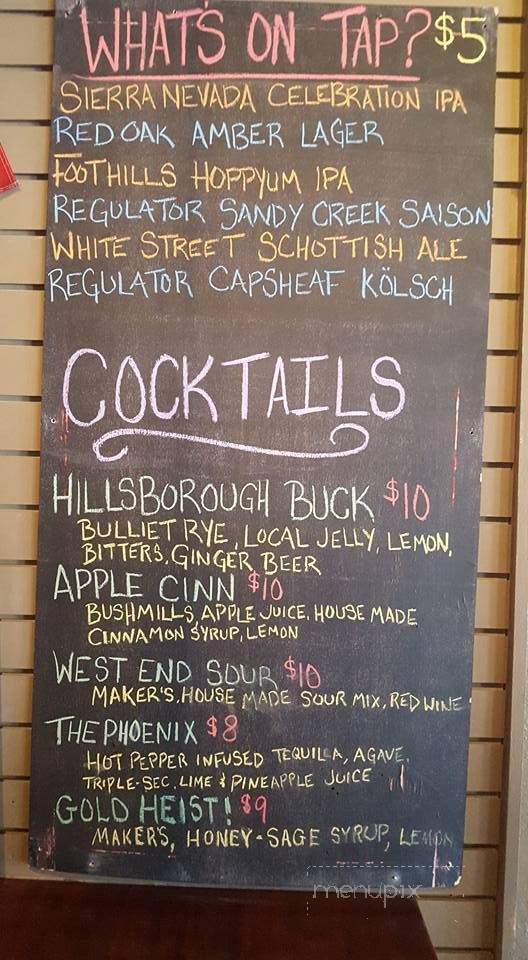 WHAT'S ON TAP? $5
SIERRA NEVADA CELEBRATION IPA
RED OAK AMBER LAGER
FOOTHILLS HOPPYUM IPA
REGULATOR SANDY CREEK SAISON
WHITE STREET SCHOTTISH ALE
REGULATOR CAPSHEAF KÖLSCH
COCKTAILS
HILLSBOROUGH BUCK $10
BULLIET RYE, LOCAL JELLY, LEMON,
BITTERS, GINGER BEER
APPLE CINN $10
BUSHMILLS, APPLE JUICE, HOUSE MADE
CINNAMON SYRUP, LEMON
WEST END SOUR $10
MAKER'S, HOUSE MADE SOUR MIX, RED WINE
THE PHOENIX $8
HOT PEPPER INFUSED TEQUILLA, AGAVE,
TRIPLE-SEC, LIME & PINEAPPLE JUICE
GOLD HEIST! $9
MAKER'S, HONEY-SAGE SYRUP, LEMON
menupix